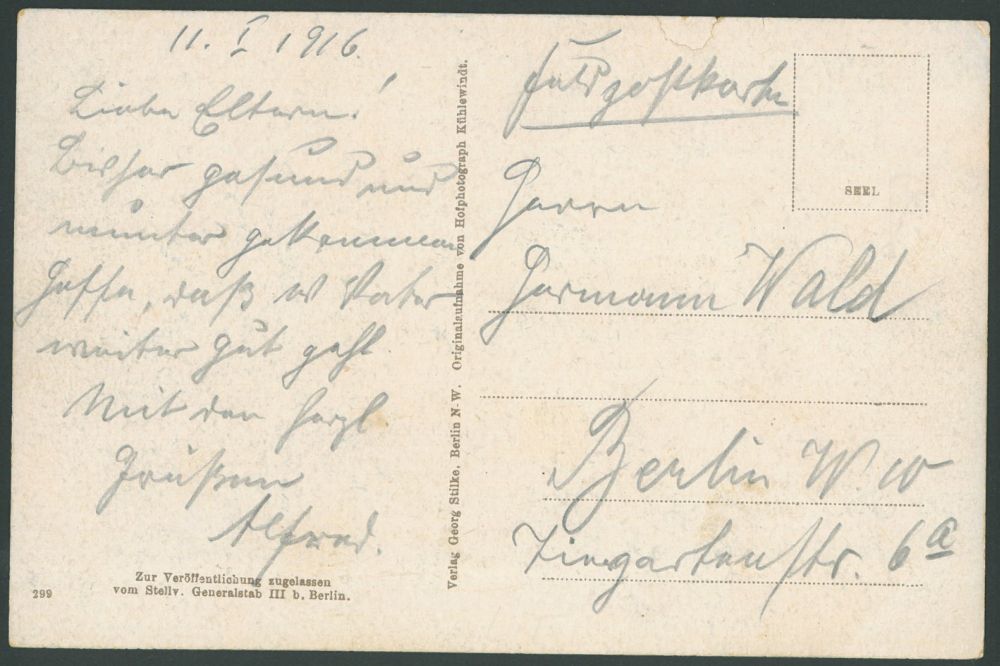 11. I 1916.
Liebe Eltern!
Bisher gesund und
munter gekommen
Hoffe, daß es Vater
weiter gut geht
Mit den herzl
Grüßen
Alfred.
Zur Veröffentlichung zugelassen
vom Stellv. Generalstab III b, Berlin.
299
Verlag Georg Stilke, Berlin N-W. Originalaufnahme von Hofphotograph Kühlewindt.
Feldpostkarte
SEEL
Herrn
Hermann Wald
Berlin W. 10
Tiergartenstr. 6a